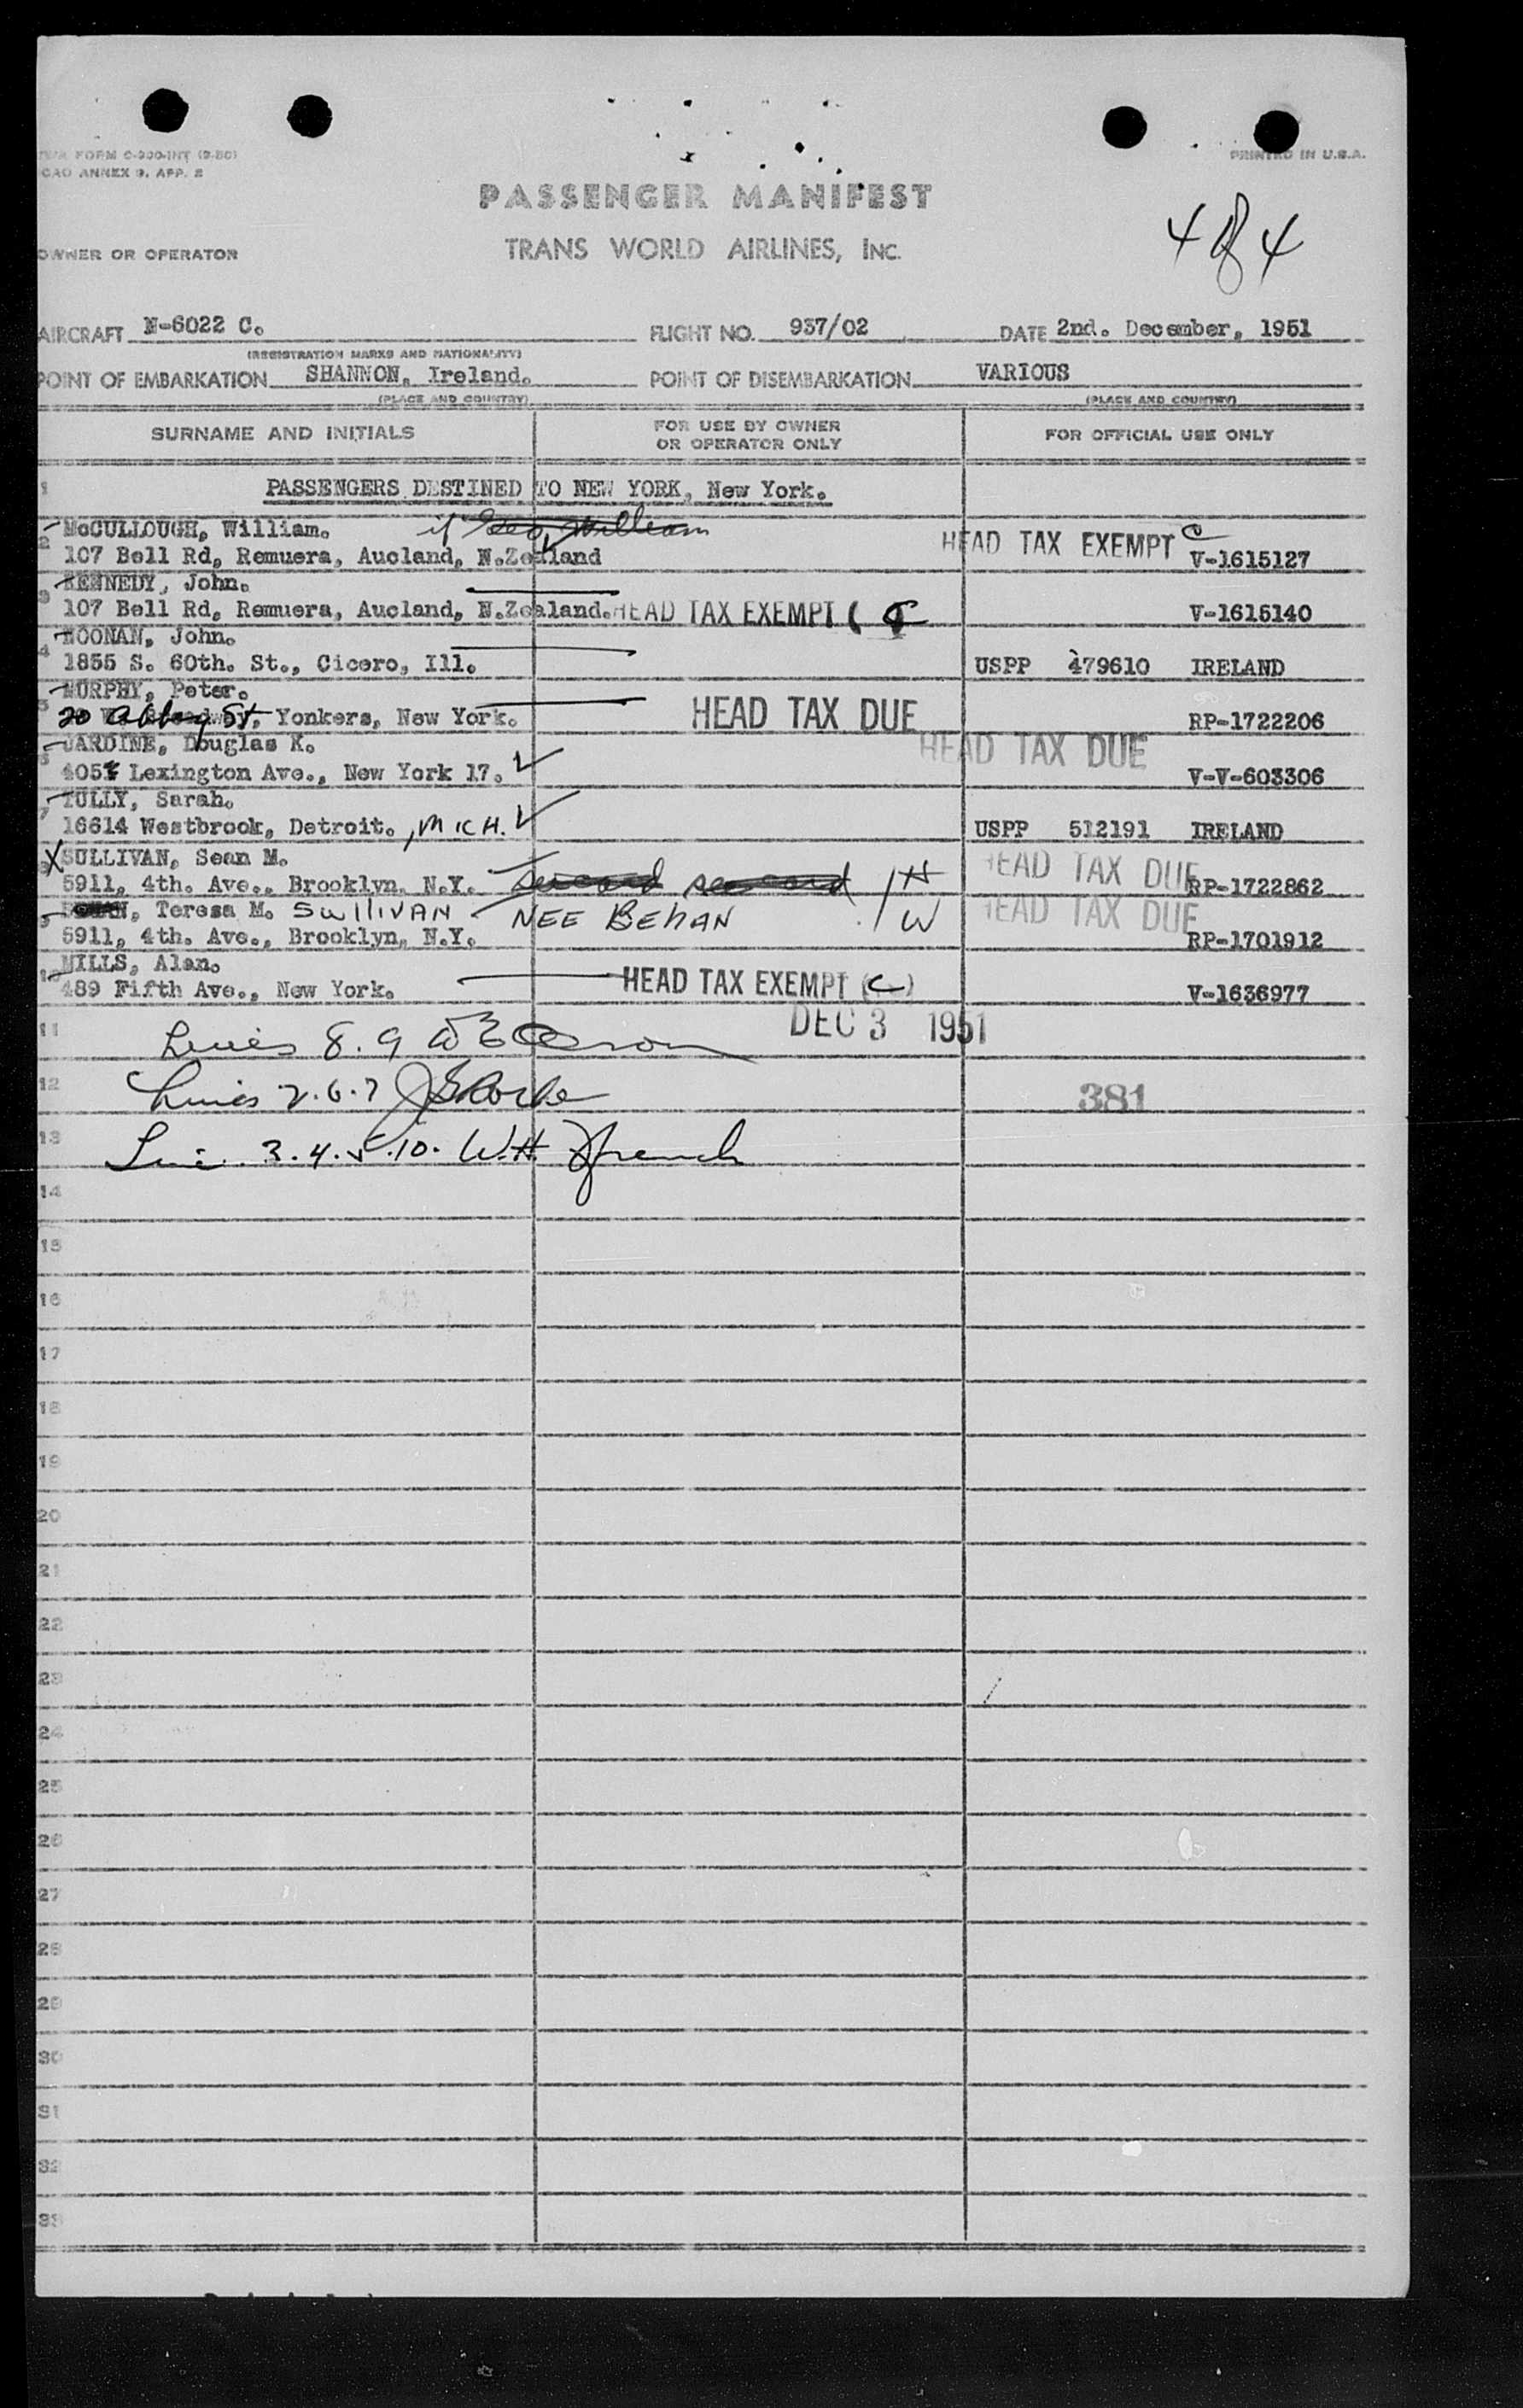 TWA FORM C-900-INT (9-50)
ICAO ANNEX 9, APP. 2
PRINTED IN U.S.A.
PASSENGER MANIFEST
4 of 4
OWNER OR OPERATOR
TRANS WORLD AIRLINES, INC.
AIRCRAFT N-6022 C. FLIGHT NO. 937/02 DATE 2nd. December, 1951
(REGISTRATION MARKS AND NATIONALITY)
POINT OF EMBARKATION SHANNON, Ireland. POINT OF DISEMBARKATION VARIOUS
(PLACE AND COUNTRY) (PLACE AND COUNTRY)
SURNAME AND INITIALS FOR USE BY OWNER OR OPERATOR ONLY FOR OFFICIAL USE ONLY
1 PASSENGERS DESTINED TO NEW YORK, New York.
McCULLOUGH, William. William HEAD TAX EXEMPT C
2 107 Bell Rd, Remuera, Aucland, N.Zealand V-1615127
KENNEDY, John.
3 107 Bell Rd, Remuera, Aucland, N.Zealand. HEAD TAX EXEMPT ( V-1615140
NOONAN, John.
4 1855 S. 60th. St., Cicero, Ill. USPP 479610 IRELAND
MURPHY, Peter.
5 20 Abbey St, Yonkers, New York. HEAD TAX DUE RP-1722206
JARDINE, Douglas K. HEAD TAX DUE
6 405 Lexington Ave., New York 17. V-V-603306
TULLY, Sarah.
7 16614 Westbrook, Detroit., MICH. USPP 512191 IRELAND
X SULLIVAN, Sean M. HEAD TAX DUE
8 5911, 4th. Ave., Brooklyn, N.Y. 1 H RP-1722862
Teresa M. SullIVAN NEE BEHAN 1 W HEAD TAX DUE
9 5911, 4th. Ave., Brooklyn, N.Y. RP-1701912
MILLS, Alan.
10 489 Fifth Ave., New York. HEAD TAX EXEMPT (C) V-1636977
DEC 3 1951
11 Lines 8. 9
12 Lines 2.6.7 381
13 Line 3.4.5.10. W.H. French
14
15
16
17
18
19
20
21
22
23
24
25
26
27
28
29
30
31
32
33